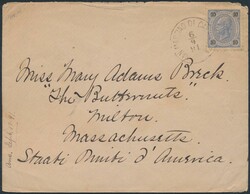 Miss Mary Adams Breck.
"The Butternuts"
Milton.
Massachusetts.
Stati Uniti d'America.